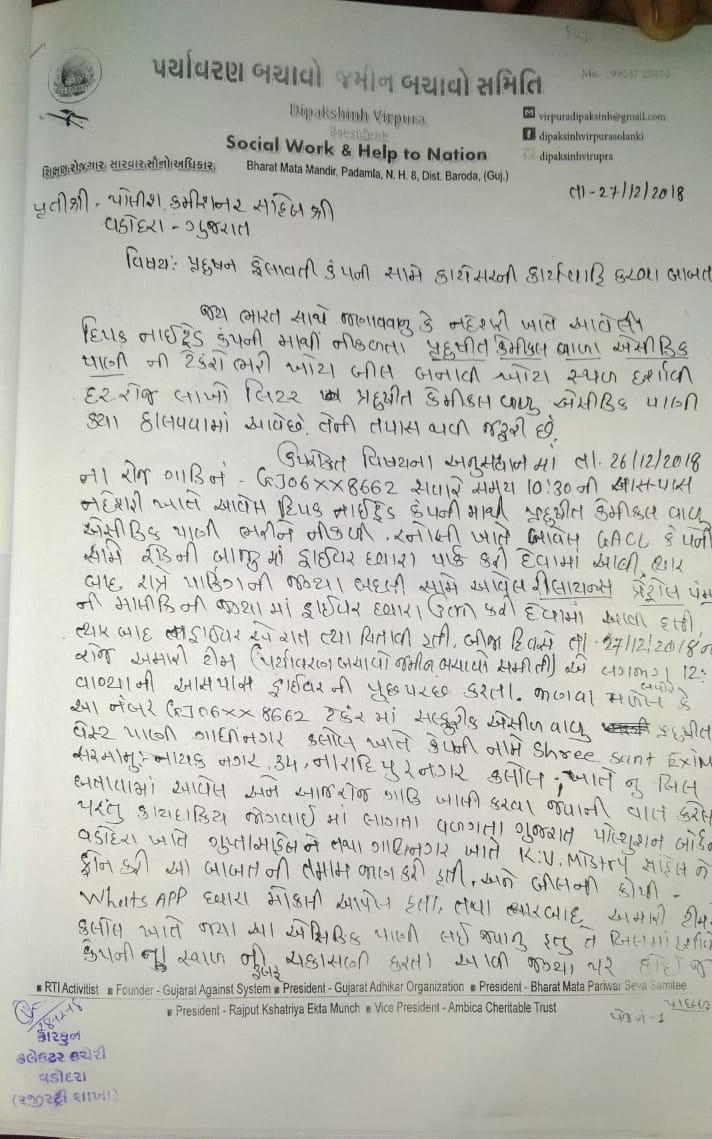 પર્યાવરણ બચાવો જમીન બચાવો સમિતિ
Mo. : 99247 25850
Dipakshinh Virpura
President
Social Work & Help to Nation
Bharat Mata Mandir, Padamla, N. H. 8, Dist. Baroda, (Guj.)
virpuradipaksinh@gmail.com
dipaksinhvirpurasolanki
dipaksinhvirupra
શિક્ષણ,રોજગાર,સારવાર,સૌનો અધિકાર
તા-27/12/2018
પ્રતીશ્રી - પોલીશ કમીશનર સાહેબ શ્રી
વડોદરા - ગુજરાત
વિષય: પ્રદુષન ફેલાવતી કંપની સામે કાયદેસરની કાર્યવાહિ કરવા બાબત
જય ભારત સાથે જણાવવાનુ કે નદેશરી ખાતે આવેલી
દિપક નાઈટ્રેડ કંપની માથી નીકળતા પ્રદુષીત કેમીકલ વાળા એસીડિક
પાણી ની ટેંકરો ભરી ખોટા બીલ બનાવી ખોટા સ્થળ દર્શાવી
દરરોજ લાખો લિટર પ્રદુષીત કેમીકલ વાળુ એસીડિક પાણી
ક્યા ઠાલવવામાં આવેછે. તેની તપાસ થવી જરૂરી છે.
ઉપરોક્ત વિષયના અનુસંધાન માં તા. 26/12/2018
ના રોજ ગાડિ નં - GJ06XX8662 સવારે સમય 10:30 ની આસ-પાસ
નદેશરી ખાતે આવેલ દિપક નાઈટ્રેડ કંપની માથી પ્રદુષીત કેમીકલ વાળુ
એસીડિક પાણી ભરીને નીકળી. રનોલી ખાતે આવેલ GACL કંપની
સામે રોડની બાજુ માં ડ્રાઈવર દ્વારા પાર્ક કરી દેવામાં આવી, ત્યાર
બાદ રાત્રે પાર્કિંગની જગ્યા બદલી સામે આવેલ રીલાયન્સ પેટ્રોલ પંપ
ની માલીકિ ની જગ્યા માં ડ્રાઈવર દ્વારા ઉભી કરી દેવામાં આવી હતી
ત્યાર બાદ ડ્રાઈવર એ રાત ત્યા વિતાવી હતી, બીજા દિવસે તા. 27/12/2018 ના
રોજ અમારી ટીમ (પર્યાવરણ બચાવો જમીન બચાવો સમીતી) એ લગભગ 12: બપોરે
વાગ્યાની આસપાસ ડ્રાઈવરની પુછપરછ કરતા. જાણવા મળેલ કે
આ નંબર GJ06XX8662 ટેંકર માં સલ્ફ્યુરીક એસીડ વાળુ પ્રદુષીત
વેસ્ટ પાણી ગાંધીનગર કલોલ ખાતે કંપની નામે Shree Sant Exim
સરનામુ:- નાયક નગર, 34, નારાદિપુરનગર કલોલ, ખાતે નુ બિલ
બતાવામાં આવેલ અને આજરોજ ગાડિ ખાલી કરવા જવાની વાત કરેલ
પરંતુ કાયદાકિય જોગવાઈ માં લાગતા વળગતા ગુજરાત પોલ્યુશન બોર્ડ
વડોદરા ખાતે ગુપ્તા સાહેબ ને તથા ગાંધીનગર ખાતે K.V. Mistry સાહેબ ને
ફોન કરી આ બાબત ની તમામ જાણ કરી હતી, અને બીલની કોપી -
Whats APP દ્વારા મોકલી આપેલ હતી, તથા ત્યારબાદ, અમારી ટીમ
કલોલ ખાતે જ્યા આ એસિડિક પાણી લઈ જવાનુ હતુ તે બિલમાં
કંપની નુ સ્થળ ની ચકાસણી કરતા આવી જગ્યા પર કોઈ જ
RTI Activitist Founder - Gujarat Against System President - Gujarat Adhikar Organization President - Bharat Mata Pariwar Seva Samitee
President - Rajput Kshatriya Ekta Munch Vice President - Ambica Cheritable Trust
પેજ નં-1
કારકુન
કલેકટર કચેરી
વડોદરા
(રજીસ્ટ્રી શાખા)